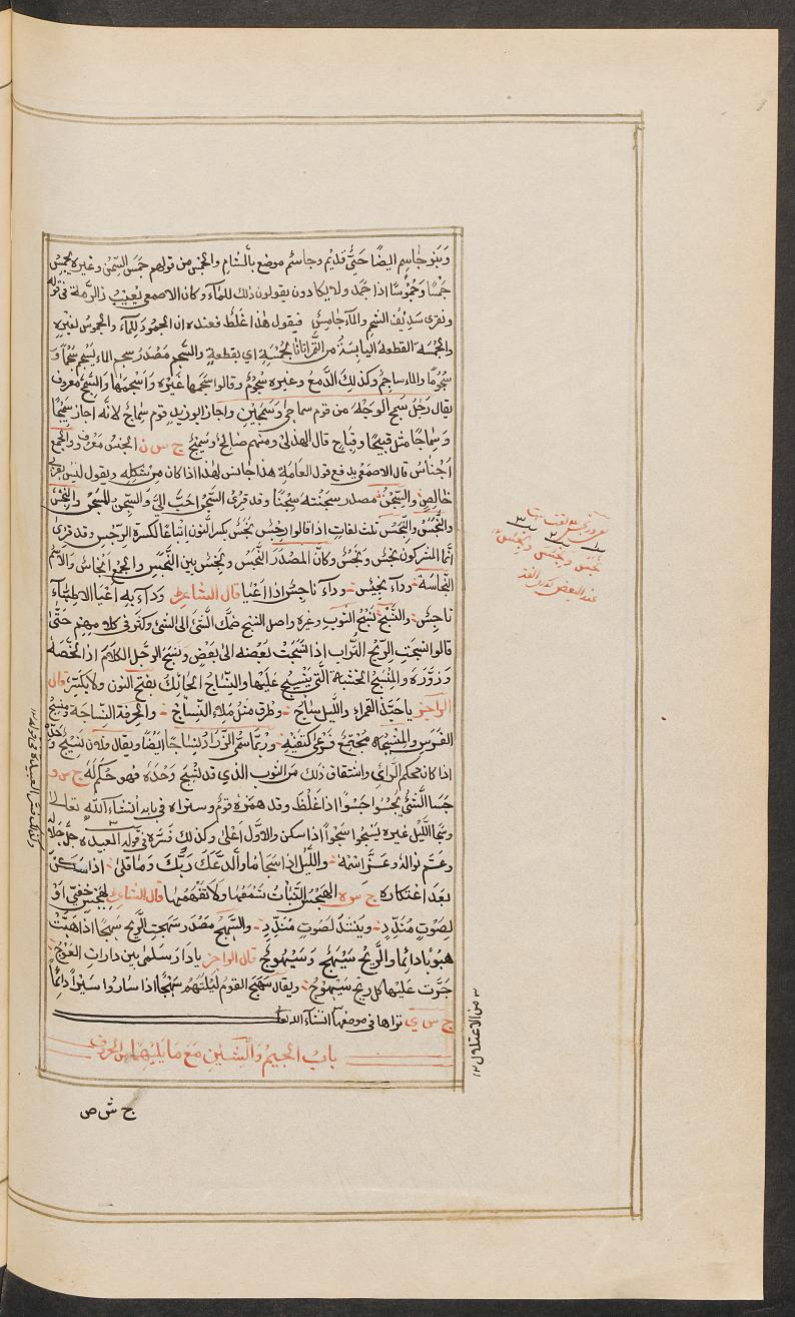 وبنو جاسم ايضًا حَىٌّ قديم وجاسم موضع بالشام والجمس من قولهم جمَسَ السَّمْنُ وغيره يجمُسُ
جَمْسًا وَجُمُوسًا اذا جَمَد ولا يكادون يقولون ذلك للماء وكان الاصمعى يَعيبُ ذا الرّمة فى قوله
ونقرى سَدِيْف الشحم والماء جامِسٌ فيقول هٰذا غَلَط فعنده ان الجمود للماء والجموس لغيره
والجُمْسَة القطعة اليابسَةُ من التمر اتانا بجُمْسَةٍ اى بقطعةٍ والسَّجم مَصْدَر سجم الماء يَسْجم سَجْمًا وَ
سُجُومًا والماء ساجِمٌ وكذٰلك الدَّمعُ وغيره سُجُوْمٌ وقالوا سَجَمَها غيرُه وَاَسْجمَهَا والسَّمِجُ معروف
يقال رَجُلٌ سَمِج الوَجْهِ من قوم سماجى وَسَمِجِيْنَ واجاز ابو زيدٍ قوم سِماجٌ لانّه اجاز سَمِيْجًا
وَسِماجًا مثل قبيحًا وقِباح قال الهذلى ومنهم صَالِحٌ وسَمِيْجُ ج س ن الجنس مَعْرُوف والجمع
اَجْنَاسٌ قال الاصمَعى يدفع قول العامة هٰذا مجانس لهٰذا اذا كان مِنْ شكله ويقول ليس بعربى
خالِصٍ والسَّجْنُ مصدر سجنته سَجْنًا وقد قرئ السَّجْنُ احَبُّ اِلىَّ والسِّجن للسجن والنَّجَسُ
والنَّجْسُ والنِّجْسُ ثلث لغاتٍ اذا قالوا رِجْسٌ نِجْسٌ بكسر النون اتباعًا لكسرة الرّجس وقد قرئ
اِنّما المشركون نَجَسٌ ونَجِسٌ وكانّ المصْدَر النَّجَسُ ونَجِسٌ بين النَّجَس والجمع انْجاسٌ والاسم
النّجاسَة وداء نجيسٌ وداء ناجِسٌ اذا اعْيا قال الشاعر وَدَاءٌ بهِ اَعْيَا الاطِبَّاءَ
ناجِسُ والنَّسْجُ نَسْجُ الثوب وغيره واصل النسج ضمّك الشَّئ الى الشئ وكثر فى كلامهم حَتَّى
قالوا نسجَت الرّيح التُّراب اذا سَحَبَتْ بعضَه الى بَعْضٍ ونَسَجَ الرجُل الكلام اذا لخَّصَه
وَزَوَّرَه والمِنْسَجُ الخشبة الَّتى يَنْسِج عليها والنّسّاج الحائِك بفتح النون ولا يكسر قال
الراجز يا حَبَّذا القمراء والليل ساجْ وطرق مثل مُلاء النّسّاجْ والحرفة النِّساجَة ومنسِجُ
الفَرَس والمَنسِجُ مُجتَمَع فروع كتفيْهِ ورُبّما سُمّى الزَّرّادُ نَسّاجًا ايضًا ويقال فلان نَسِيْجُ وَحْدِه
اذا كان محكم الرّاى واشتقاق ذٰلك من الثوب الذى قد نُسِجَ وَحْدَه فهو حُكم لَه ج س و
جَسَا الشَّئُ يَجْسُوا جُسُوًّا اذا غلظ وقد همَزَه قومٌ وستراه فى بابه انشاء اللّٰهِ تعالى
وسَجَا اللَّيْل وغيره يَسْجُوا سَجْوًا اذا سكن والاوّل اَعْلٰى وكذٰلك فسّره فى قوله ابو عبيدة جلَّ جَلَالُه
وعَمَّ نوالهُ وعَزَّ اسْمه واللَّيْل اِذا سَجَا مَا وَدَّعَكَ رَبُّكَ وَمَا قلٰى اذا سَكَنَ
بعدَ اعْتكاره ج س ه الهَجْسُ النَّبأة تَسْمَعُها وَلا تَفْهَمُها قال الشاعر لِهَجْسٍ خفيّ اَوْ
لصَوْتٍ مُنَدِّدٍ ويُنْشَد لصَوْتٍ مُنَدَّدٍ والسَّهْجُ مَصْدَر سَهَجَتِ الرّيح سَهْجًا اذا هَبّتْ
هبُوبًا دائمًا والرّيحُ سَيْهَجٌ وَسَيْهُوجٌ قال الراجز يا دارَ سَلمٰى بَين دارات العُوْجْ
جَرَّت عليْها كلّ ريحٍ سَيْهُوجْ ويقال سَهَجَ القوم لَيْلَتَهُم سَهْجًا اذا سَاروا سَيْرًا دائمًا
ج س ي تراها فى موضعها انشاء اللّٰه تعالى
بابُ الجيم والشّين مَعَ مَا يَليْهِمَا من الحروف
ج ش ص
نَجْس ونجَس ونجِس
عند البعض
من الاعتلال ١٢